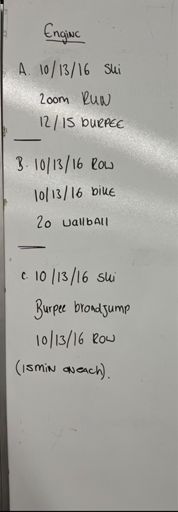 Engine
A. 10/13/16 Ski
200m RUN
12/15 BURPEE
B. 10/13/16 ROW
10/13/16 bike
20 wallball
C. 10/13/16 ski
Burpee broadjump
10/13/16 ROW
(15min on each).